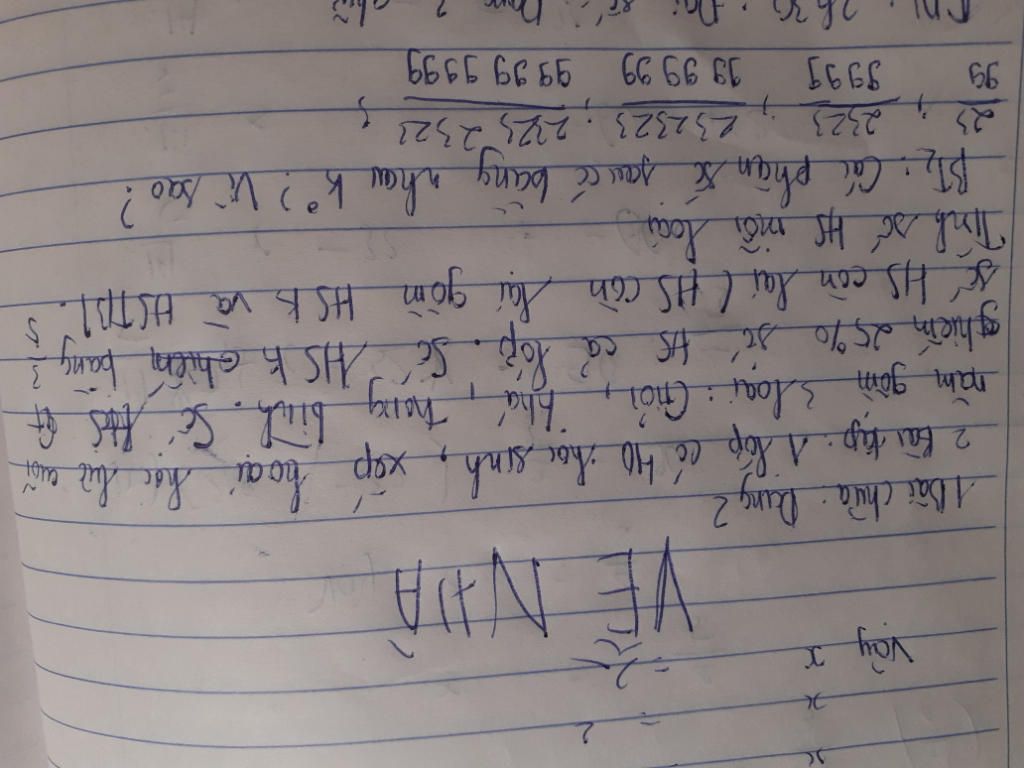 x
x = 2
Vậy x = 2
VỀ NHÀ
1 Bài chữa: Dạng 2
2 Bài tập: 1 lớp có 40 học sinh, xếp loại học lực cuối
năm gồm 3 loại: Giỏi, khá, Trung bình. Số HS G
chiếm 25% số HS cả lớp. Số HSK chiếm bằng 3/5
số HS còn lại (HS còn lại gồm HSK và HSTB).
Tính số HS mỗi loại
BT2: Các phân số sau có bằng nhau k°? Vì sao?
23/99 ; 2323/9999 ; 232323/999999 ; 23232323/99999999 ;